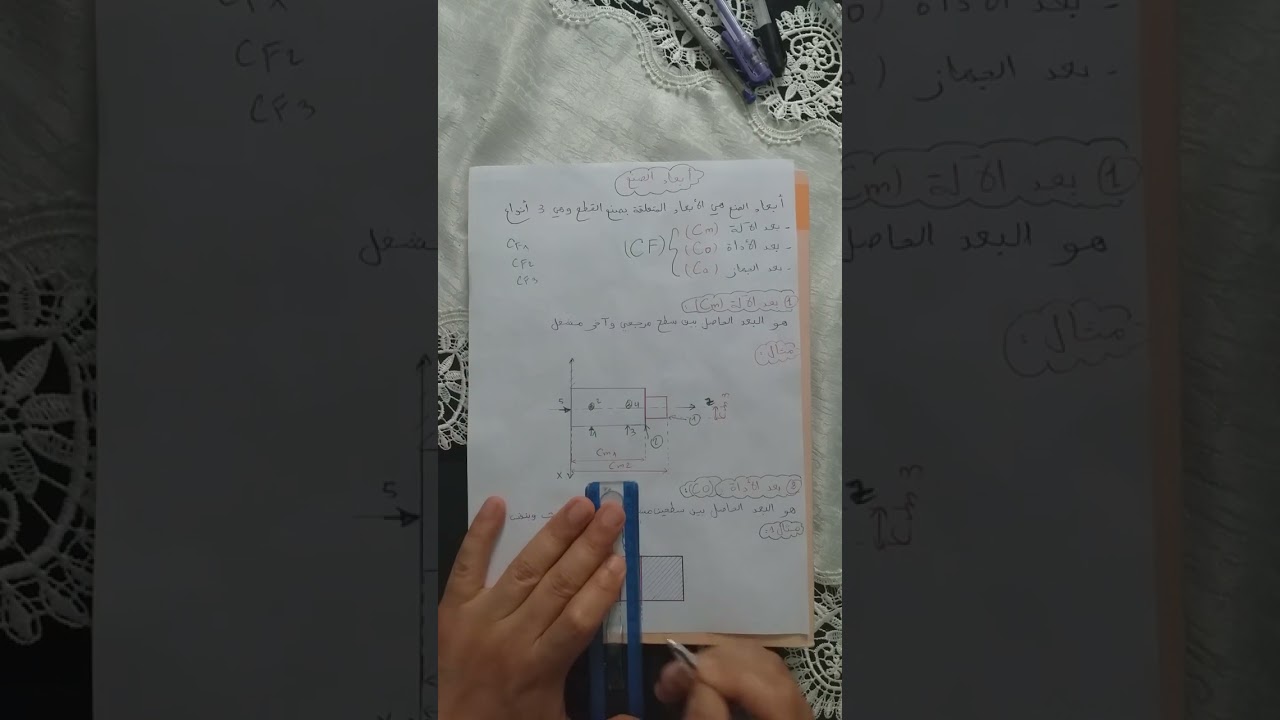 أبعاد الصنع
أبعاد الصنع هي الأبعاد المتعلقة بصنع القطع وهي 3 أنواع
- بعد الآلة (Cm)
- بعد الأداة (Co)
- بعد الجهاز (Ca)
(CF)
CF1
CF2
CF3
1 بعد الآلة (Cm):
هو البعد الحاصل بين سطح مرجعي وآخر مشغل
مثال:
5
2
4
1
3
Z
1
2
mf
Cm1
Cm2
X
2 بعد الأداة (Co):
هو البعد الحاصل بين سطحين
مثال: